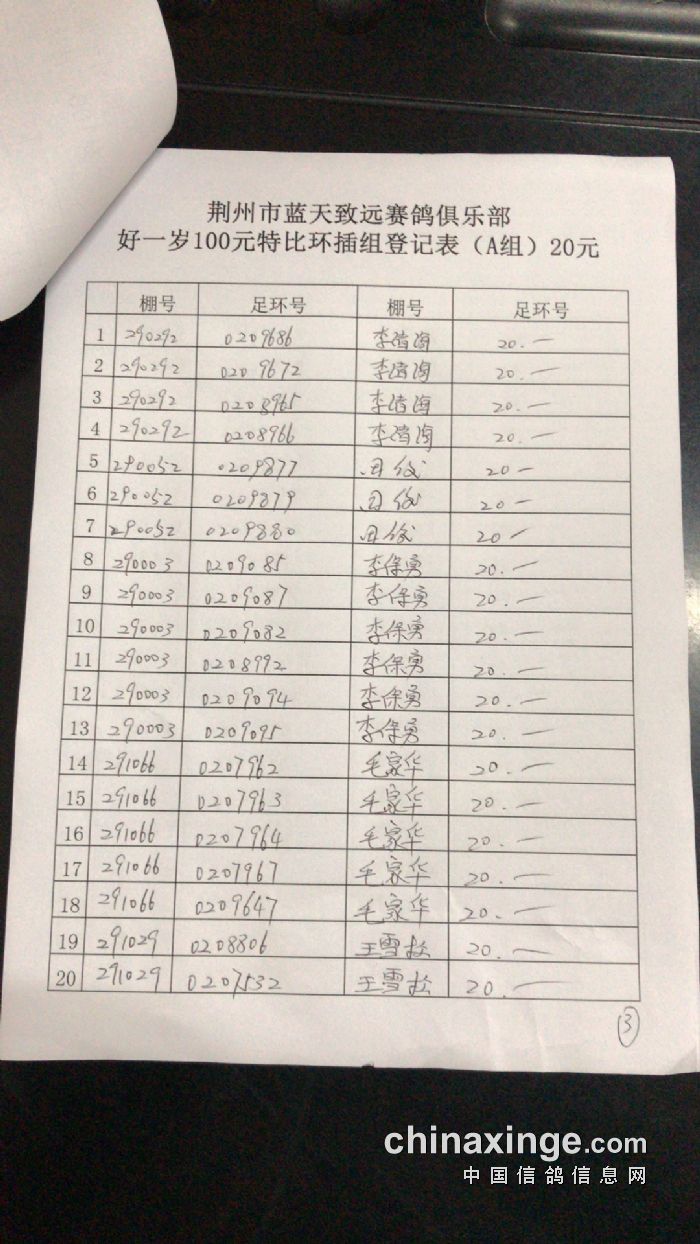 荆州市蓝天致远赛鸽俱乐部
好一岁100元特比环插组登记表（A组）20元
棚号 足环号 棚号 足环号
1 290292 0209686 李清海 20.—
2 290292 0209672 李清海 20.—
3 290292 0208965 李清海 20.—
4 290292 0208966 李清海 20.—
5 290052 0209877 20—
6 290052 0209879 20—
7 290052 0209880 20—
8 290003 0209085 李保勇 20.—
9 290003 0209087 李保勇 20.—
10 290003 0209082 李保勇 20.—
11 290003 0208992 李保勇 20.—
12 290003 0209094 李保勇 20.—
13 290003 0209095 李保勇 20.—
14 291066 0207962 毛家华 20.—
15 291066 0207963 毛家华 20.—
16 291066 0207964 毛家华 20.—
17 291066 0207967 毛家华 20.—
18 291066 0209647 毛家华 20.—
19 291029 0208806 王雪松 20.—
20 291029 0207532 王雪松 20.—
③
chinaxinge.com
中国信鸽信息网